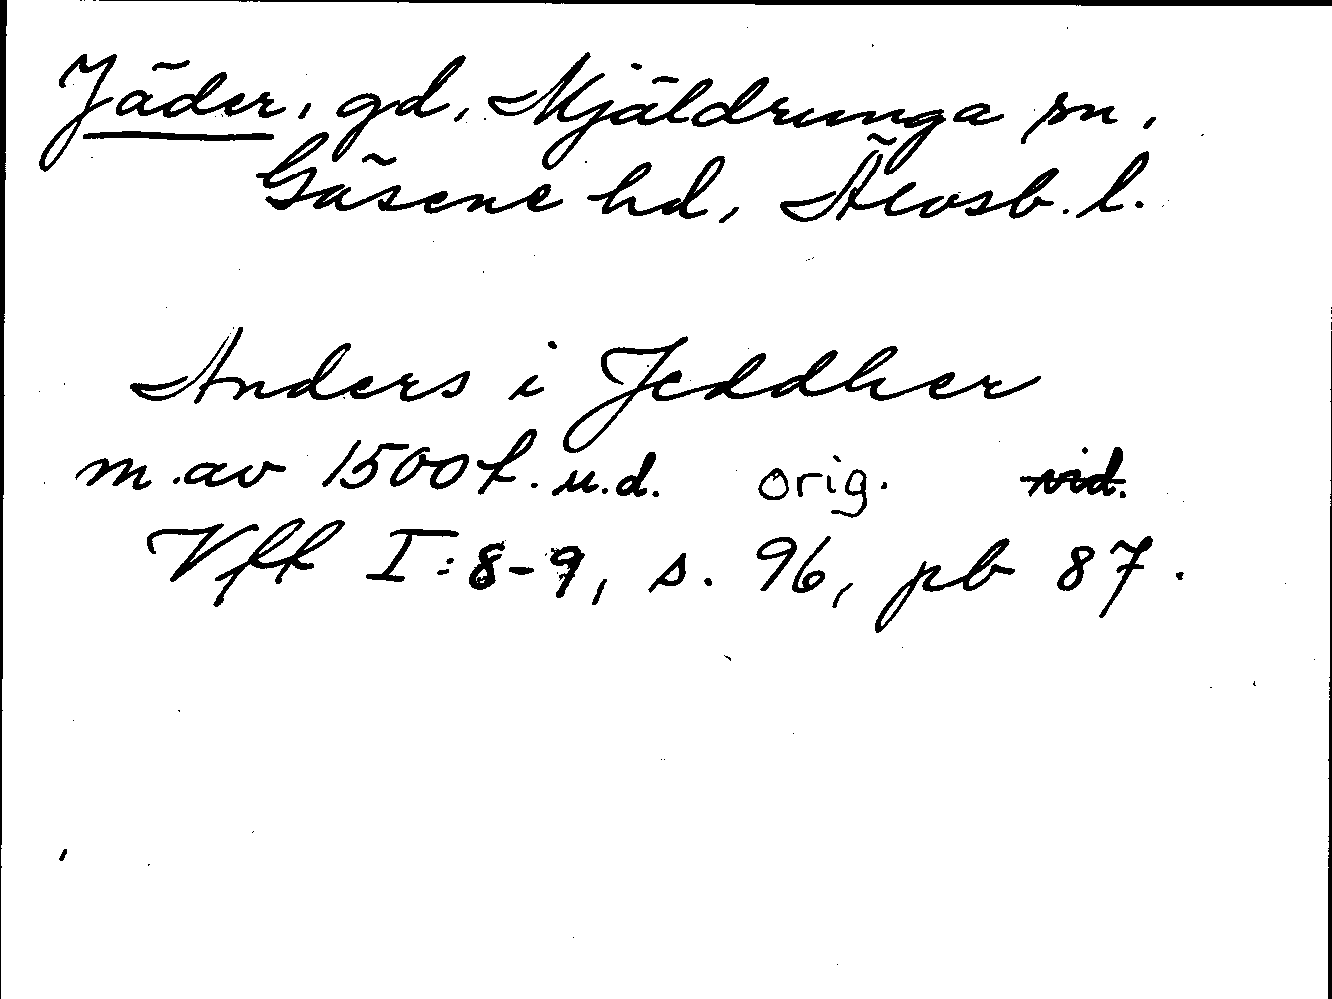 Jäder, gd, Mjäldrunga sn,
Gäsene hd, Älvsb. l.
Anders i Jeddher
m. av 1500 t. u.d. orig. vid.
Vft I:8-9, s. 96, pb 87.